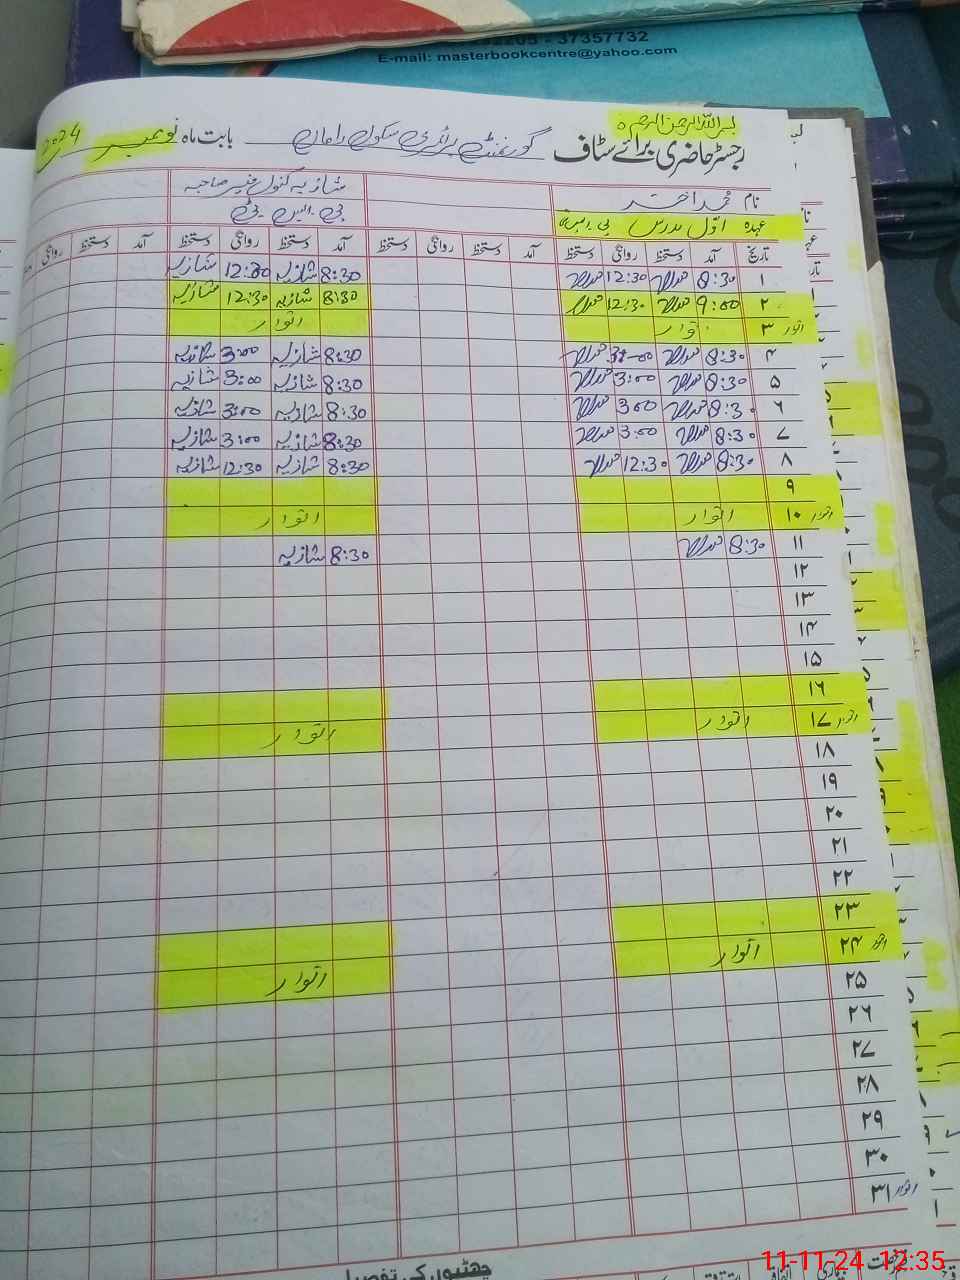 37357732
E-mail: masterbookcentre@yahoo.com
بسم اللہ الرحمن الرحیم
رجسٹر حاضری برائے سٹاف گورنمنٹ پرائمری سکول بابت ماہ نومبر 2024
نام محمد احمد
شازیہ کنول
عہدہ اول مدرس پی
تاریخ آمد دستخط روانگی دستخط آمد دستخط روانگی دستخط آمد دستخط روانگی دستخط آمد دستخط روانگی
۱ 8:30 12:30 8:30 شازیہ 12:30 شازیہ
۲ 9:00 12:30 8:30 شازیہ 12:30 شازیہ
۳ اتوار اتوار اتوار
۴ 8:30 8:30 شازیہ 3:00 شازیہ
۵ 8:30 3:00 8:30 شازیہ 3:00 شازیہ
۶ 8:30 3:00 8:30 شازیہ 3:00 شازیہ
۷ 8:30 3:00 8:30 شازیہ 3:00 شازیہ
۸ 8:30 12:30 8:30 شازیہ 12:30 شازیہ
۹
۱۰ اتوار اتوار اتوار
۱۱ 8:30 8:30 شازیہ
۱۲
۱۳
۱۴
۱۵
۱۶
۱۷ اتوار اتوار اتوار
۱۸
۱۹
۲۰
۲۱
۲۲
۲۳
۲۴ اتوار اتوار اتوار
۲۵
۲۶
۲۷
۲۸
۲۹
۳۰
۳۱ اتوار
چھٹیوں کی تفصیل
11-11-24 12:35